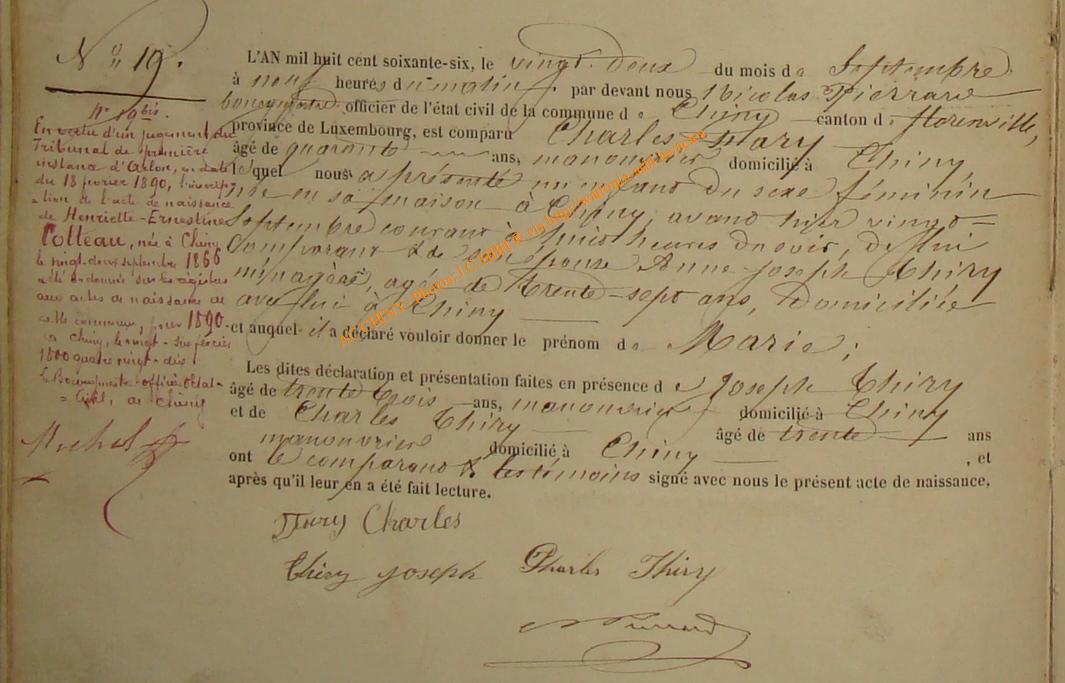 N° 19.
N° 19 bis.
En vertu d'un jugement du
Tribunal de première
instance d'Arlon, en date
du 18 février 1890, l'inscrip-
-tion de l'acte de naissance
de Henriette-Ernestine
Potteau, née à Chiny
le vingt-deux septembre 1866
a été ordonnée sur les registres
aux actes de naissances de
cette commune, pour 1890.
à Chiny, le vingt-six février
1800 quatre vingt-dix
Le Bourgmestre officier
de Chiny
Michel
L'AN mil huit cent soixante-six, le vingt-deux du mois de Septembre
à neuf heures du matin, par devant nous Nicolas Pierrard
bourgmestre officier de l'état civil de la commune de Chiny canton de florenville,
province de Luxembourg, est comparu Charles Hary
âgé de quarante ans, manouvrier domicilié à Chiny,
lequel nous a présenté un enfant du sexe féminin
née en sa maison à Chiny, avant hier vingt
Septembre courant à huit heures du soir, de lui
Comparant & de son épouse Anne-Joseph Thiry
ménagère, agée de Trente-sept ans, domiciliée
avec lui à Chiny
et auquel il a déclaré vouloir donner le prénom de Marie;
Les dites déclaration et présentation faites en présence de Joseph Thiry
âgé de trente trois ans, manouvrier domicilié à Chiny
et de Charles Thiry âgé de trente ans
manouvrier domicilié à Chiny, et
ont le comparant & les témoins signé avec nous le présent acte de naissance,
après qu'il leur en a été fait lecture.
Charles
Thiry joseph Charles Thiry
Pierrard